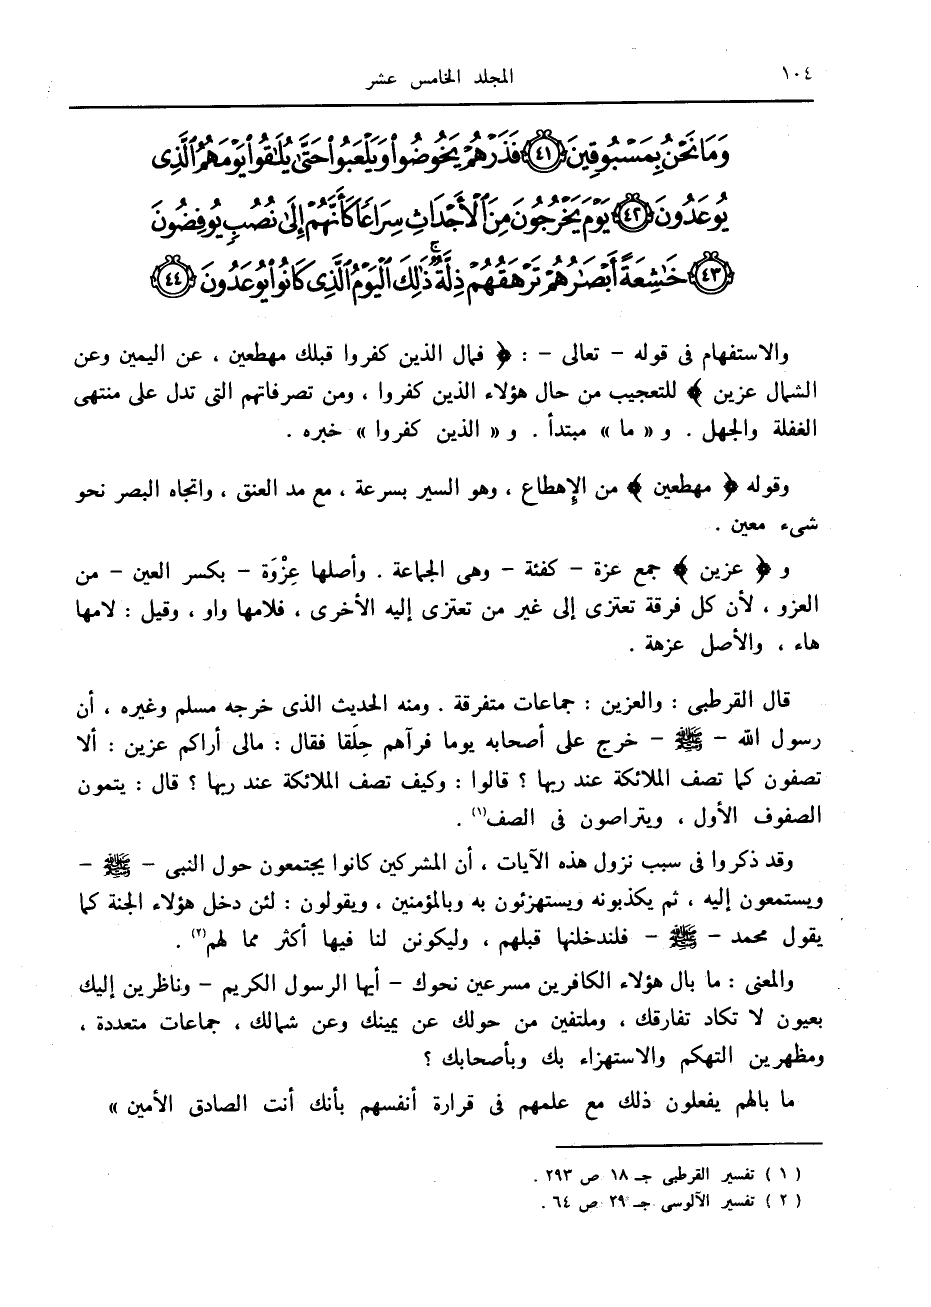 ١٠٤
المجلد الخامس عشر
وَمَا نَحْنُ بِمَسْبُوقِينَ ﴿٤١﴾ فَذَرْهُمْ يَخُوضُوا۟ وَيَلْعَبُوا۟ حَتَّىٰ يُلَـٰقُوا۟ يَوْمَهُمُ ٱلَّذِى
يُوعَدُونَ ﴿٤٢﴾ يَوْمَ يَخْرُجُونَ مِنَ ٱلْأَجْدَاثِ سِرَاعًا كَأَنَّهُمْ إِلَىٰ نُصُبٍ يُوفِضُونَ
﴿٤٣﴾ خَـٰشِعَةً أَبْصَـٰرُهُمْ تَرْهَقُهُمْ ذِلَّةٌ ۚ ذَٰلِكَ ٱلْيَوْمُ ٱلَّذِى كَانُوا۟ يُوعَدُونَ ﴿٤٤﴾
والاستفهام فى قوله – تعالى – : ﴿ فمال الذين كفروا قبلك مهطعين ، عن اليمين وعن
الشمال عزين ﴾ للتعجيب من حال هؤلاء الذين كفروا ، ومن تصرفاتهم التى تدل على منتهى
الغفلة والجهل . و « ما » مبتدأ . و « الذين كفروا » خبره .
وقوله ﴿ مهطعين ﴾ من الإِهطاع ، وهو السير بسرعة ، مع مد العنق ، واتجاه البصر نحو
شىء معين .
و ﴿ عزين ﴾ جمع عزة – كفئة – وهى الجماعة . وأصلها عِزْوَة – بكسر العين – من
العزو ، لأن كل فرقة تعتزى إلى غير من تعتزى إليه الأخرى ، فلامها واو ، وقيل : لامها
هاء ، والأصل عزهة .
قال القرطبى : والعزين : جماعات متفرقة . ومنه الحديث الذى خرجه مسلم وغيره ، أن
رسول الله – ﷺ – خرج على أصحابه يوما فرآهم حِلَقا فقال : مالى أراكم عزين : ألا
تصفون كما تصف الملائكة عند ربها ؟ قالوا : وكيف تصف الملائكة عند ربها ؟ قال : يتمون
الصفوف الأول ، ويتراصون فى الصف(١) .
وقد ذكروا فى سبب نزول هذه الآيات ، أن المشركين كانوا يجتمعون حول النبى – ﷺ –
ويستمعون إليه ، ثم يكذبونه ويستهزئون به وبالمؤمنين ، ويقولون : لئن دخل هؤلاء الجنة كما
يقول محمد – ﷺ – فلندخلنها قبلهم ، وليكونن لنا فيها أكثر مما لهم(٢) .
والمعنى : ما بال هؤلاء الكافرين مسرعين نحوك – أيها الرسول الكريم – وناظرين إليك
بعيون لا تكاد تفارقك ، وملتفين من حولك عن يمينك وعن شمالك ، جماعات متعددة ،
ومظهرين التهكم والاستهزاء بك وبأصحابك ؟
ما بالهم يفعلون ذلك مع علمهم فى قرارة أنفسهم بأنك أنت الصادق الأمين »
( ١ ) تفسير القرطبى جـ ١٨ ص ٢٩٣ .
( ٢ ) تفسير الآلوسى جـ ٢٩ ص ٦٤ .